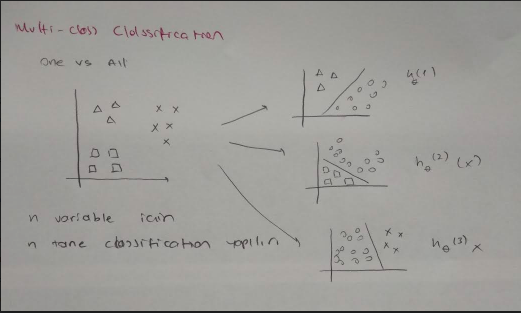 Multi-class Classification
One vs All
h θ (1)
h θ (2) (x)
n variable icin
n tane classification yapilir
h θ (3) x